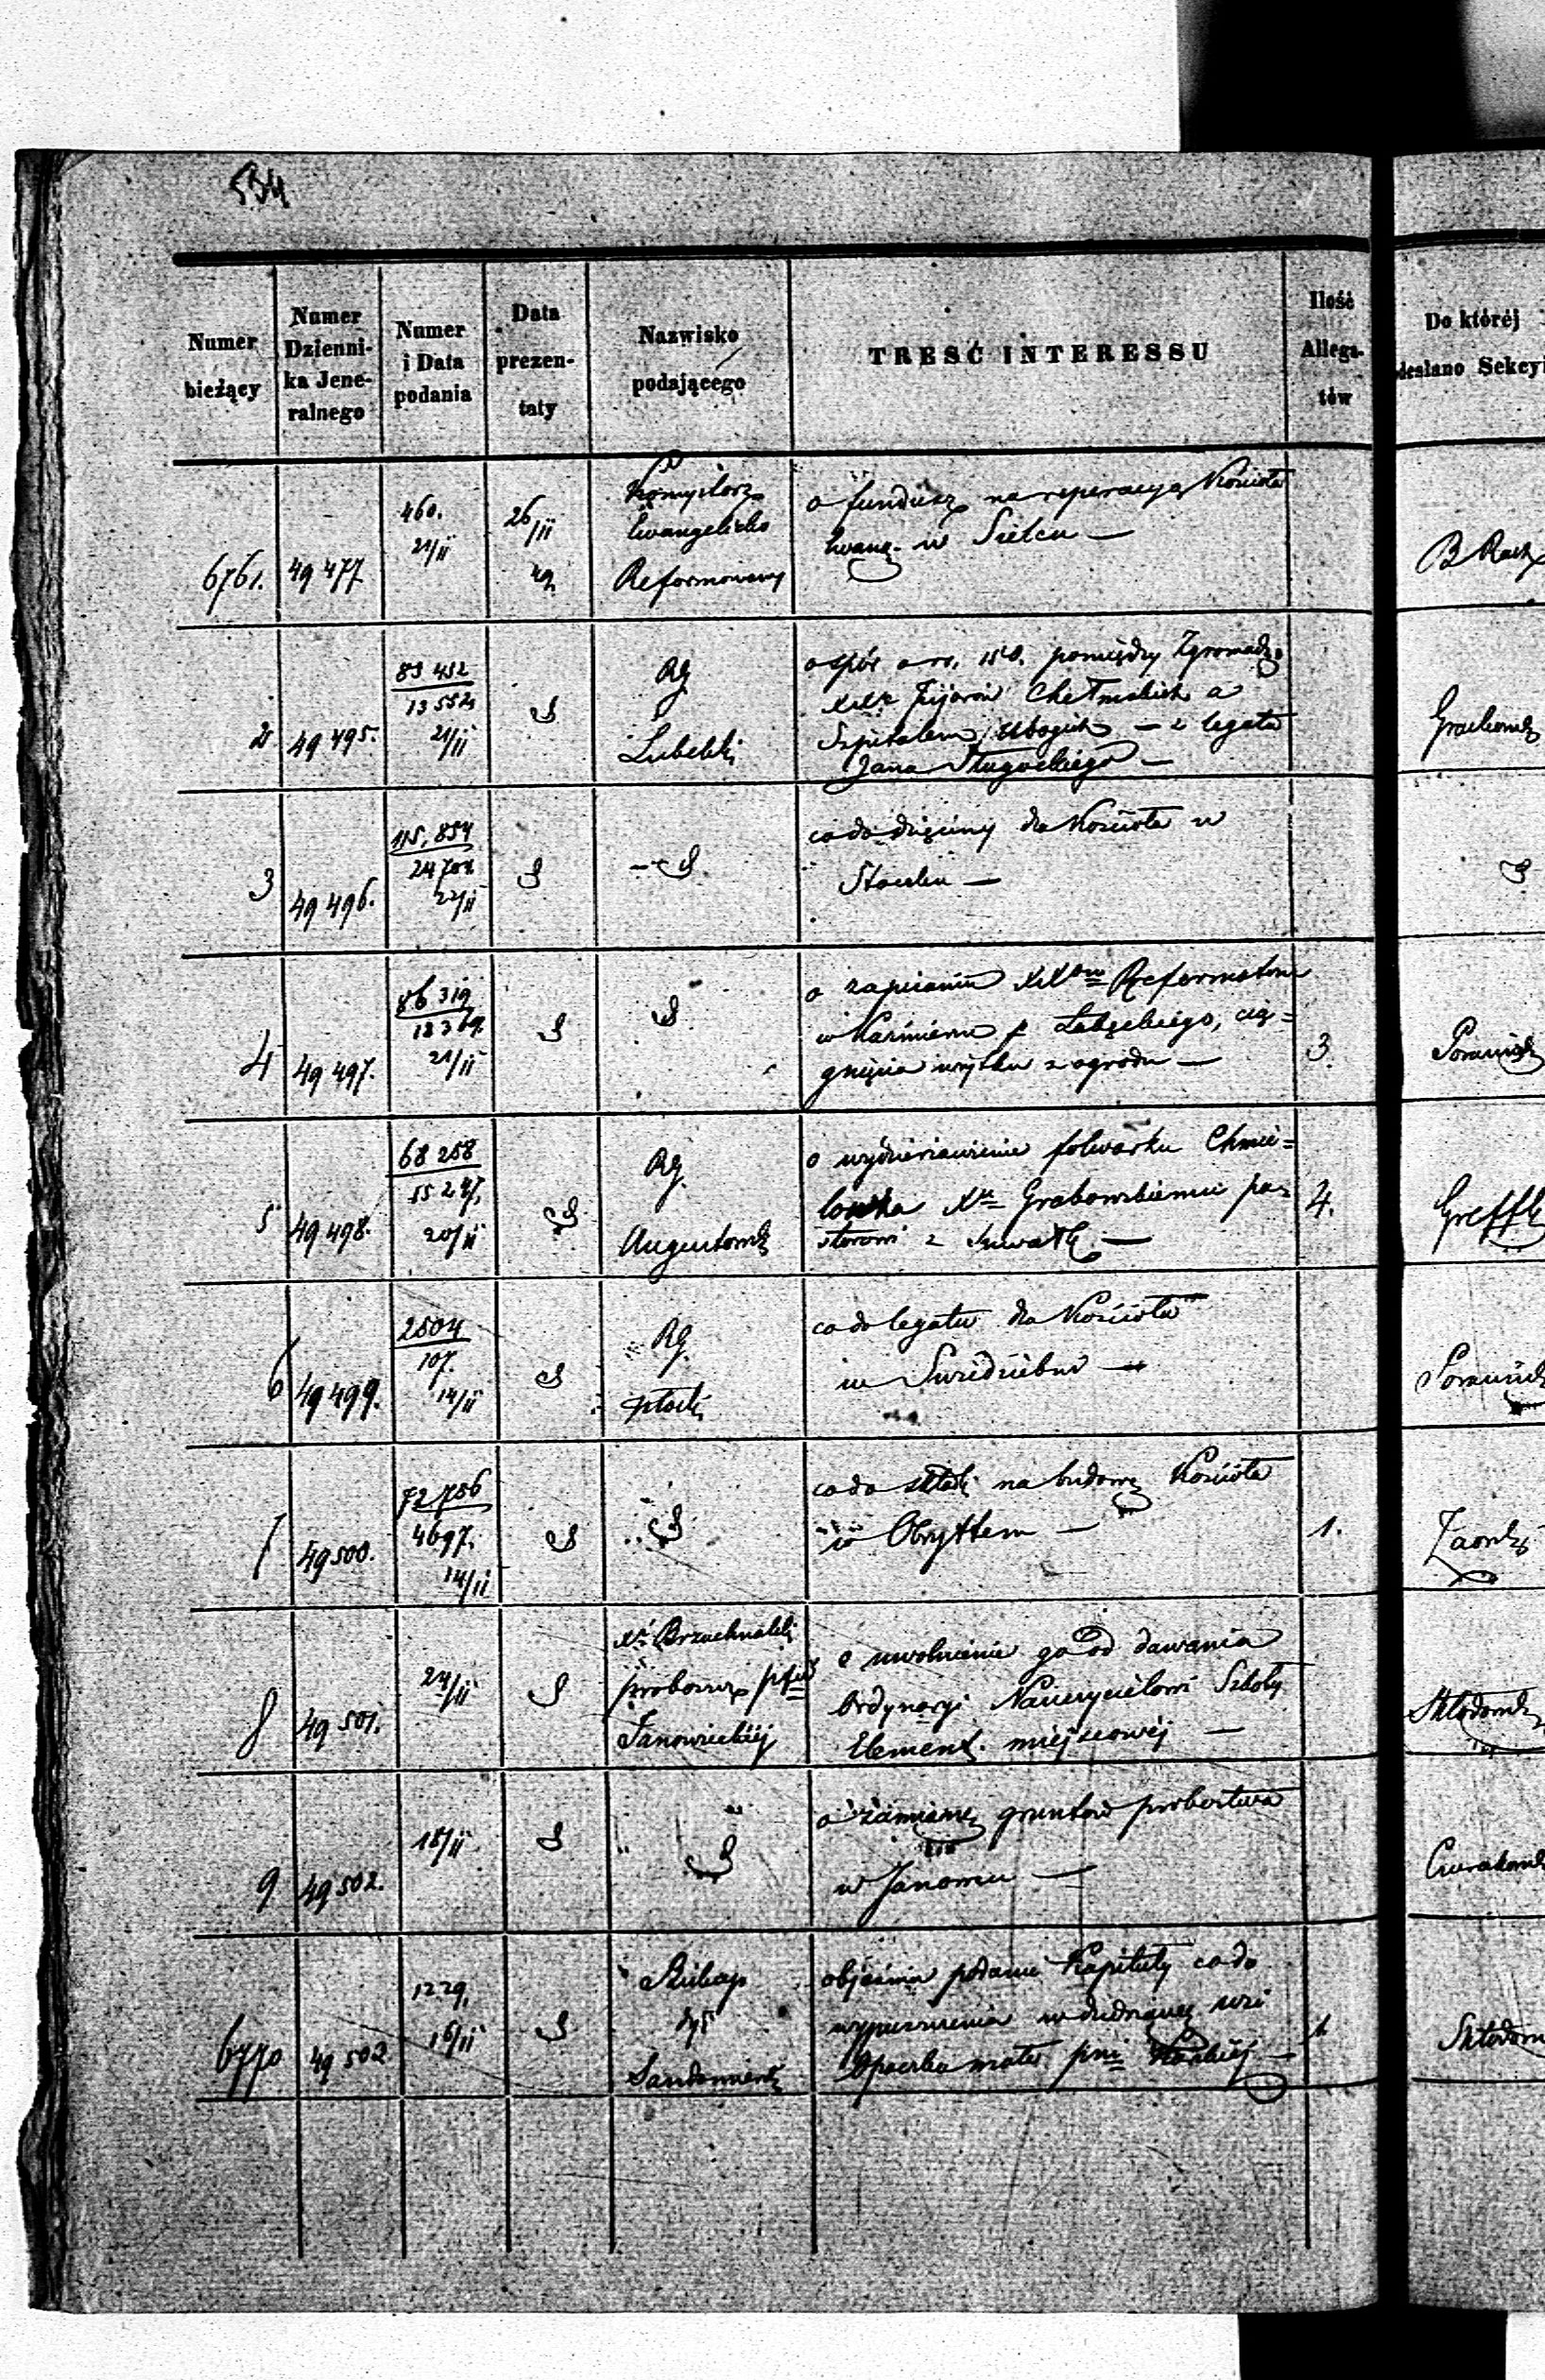 534
Numer bieżący
Numer Dzienni-ka Jene-ralnego
Numer i Data podania
Data prezen-taty
Nazwisko podającego
TREŚĆ INTERESSU
Ilość Allega-tów
Do któréj
desłano Sekcyi
6761. 49 477 460. 21/II 26/II 49
Konsystorz
Ewangelicko
Reformowany
o fundusz na reperacyą Kościoła
Ewang. w Sielcu —
2 49 495. 83 452 13 552 21/II
RG
Lubelski
o spór o rs. 150. pomiędzy Zgromadz.
XXr Pijarów Chełmskich a
Szpitalem Ubogich — z legatu
Jana
3 49 496. 115,854 24 704 22/II
co do dzięsiny dla Kościoła w
4 49 497. 86 319 18369. 21/II
o zapisaniu XX Reformatom
w Kazimierzu p. cią=
gnięcia użytku z ogrodu —
3
5 49 498. 68 258 55 247, 20/II
RG
Augustowski
o wydzierżawienie folwarku Chmie=
lówka Xu Grabowskiemu pa=
storowi z Suwałk —
4.
6 49 499. 2504 107. 14/II
RG
Płocki
co do legatu dla Kościoła
w
7 49500. 72 786 4697. 14/II
co do składki na budowę Kościoła
w Obryttem —
1.
8 49 501. 24/II
X. Brzuchalski
proboszcz
Janowieckiéj
o uwolnienie go od dawania
Ordynaryi Nauczycielowi Szkoły
Element. miejscowéj —
9 49 502. 18/II
o zamianę gruntów probostwa
w Janowcu —
6770 49 502 1229, 16/II
Biskup
dyr
Sandomierski
objaśnia podanie Kapituły co do
wypuszczenia w dzierżawę wsi
1.